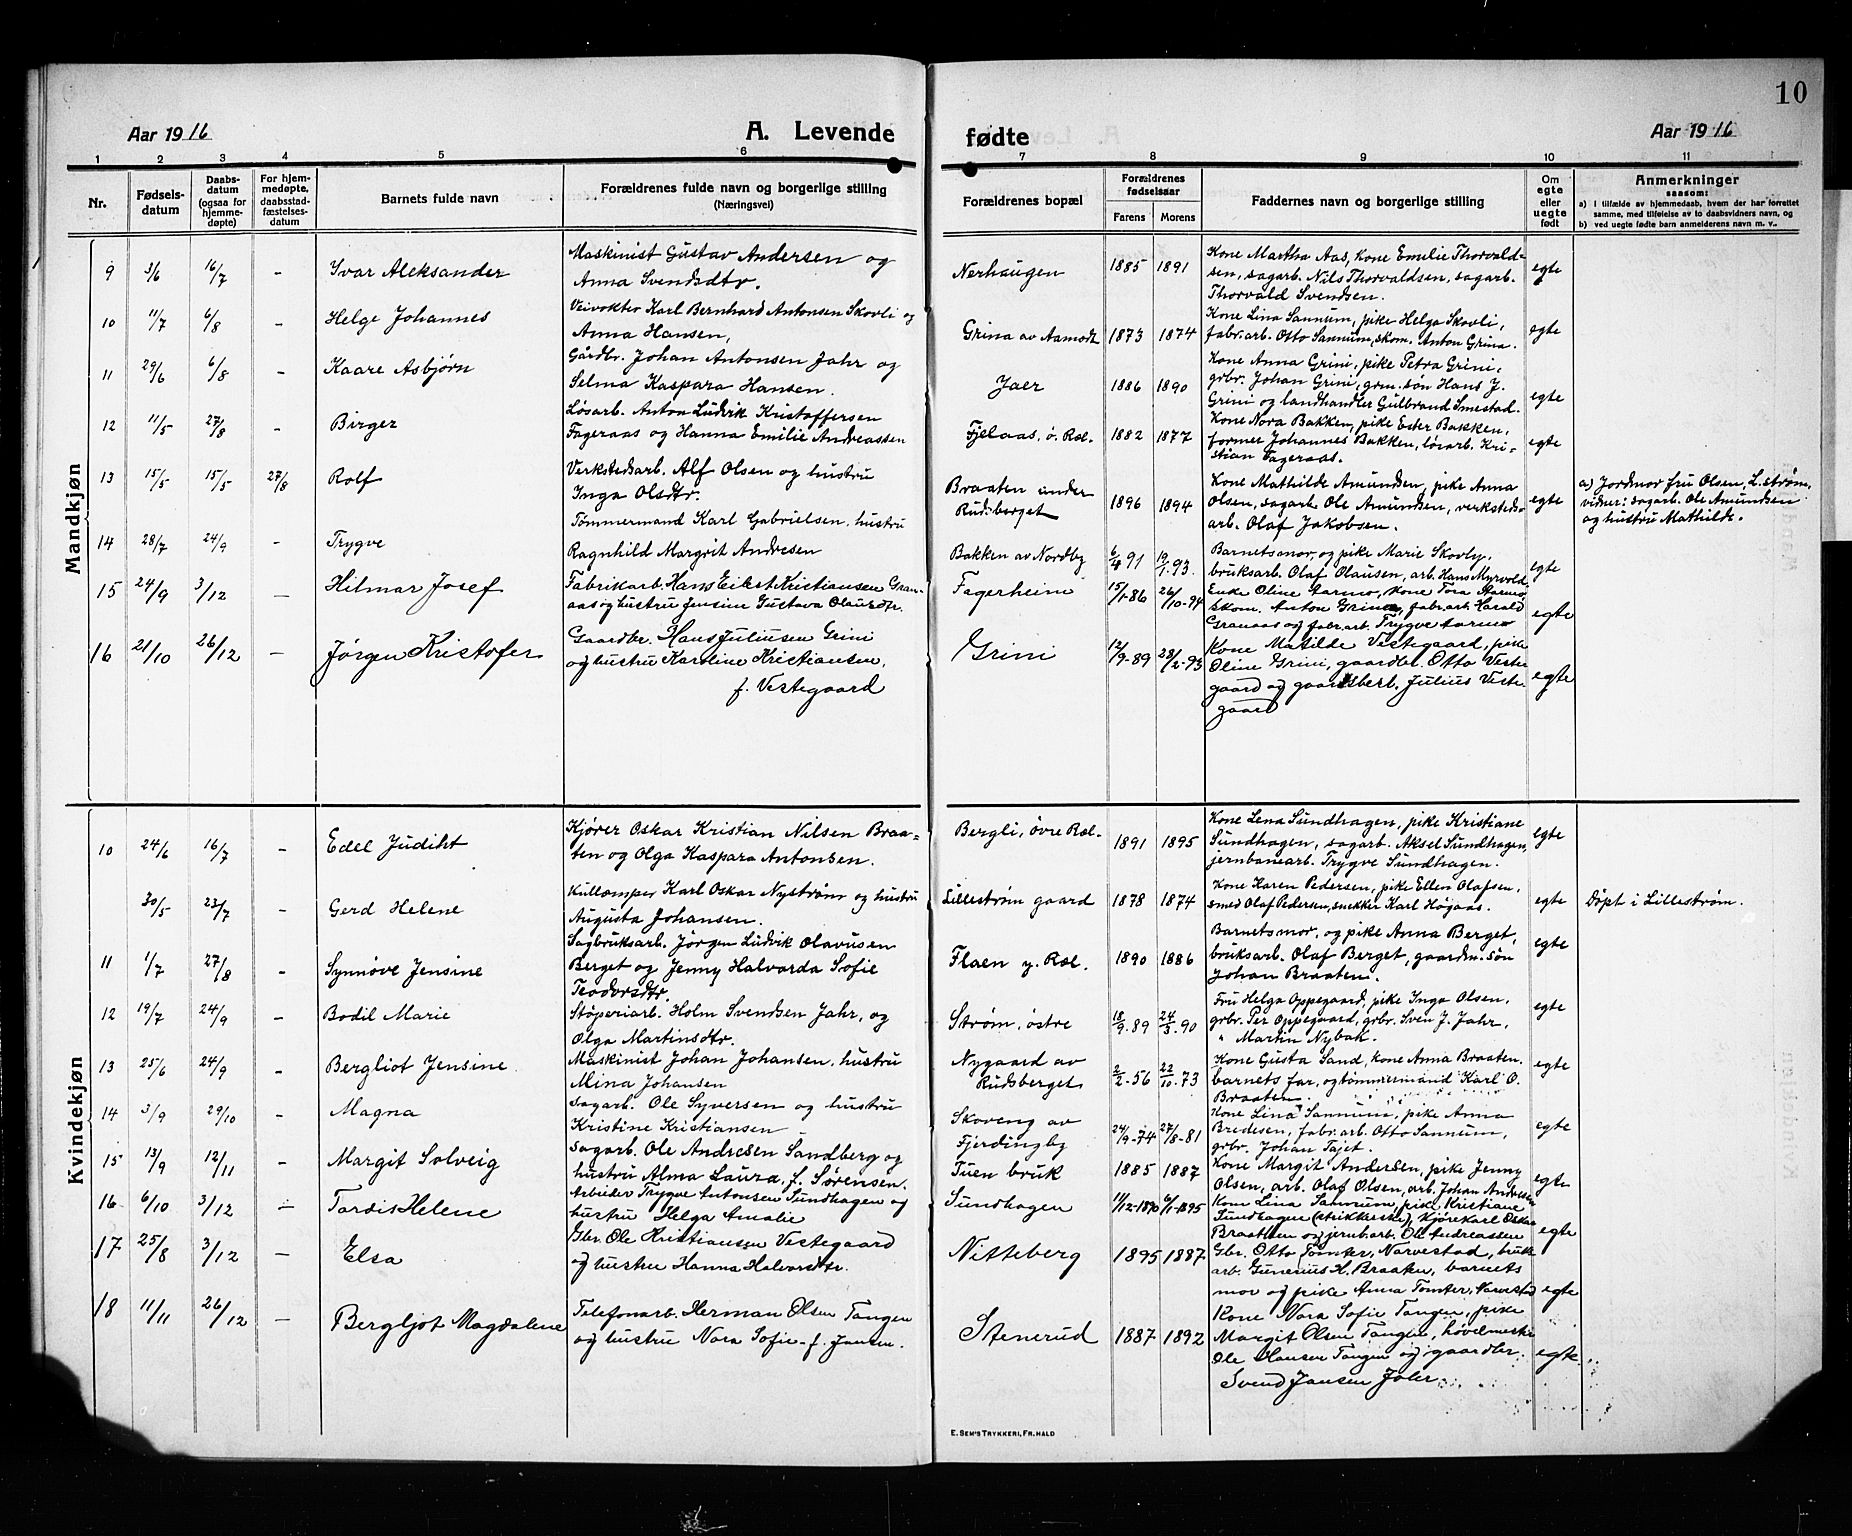 10
Aar 1916 A. Levende fødte Aar 1916
1 2 3 4 5 6 7 8 9 10 11
Nr.
Fødsels-
datum
Daabs-
datum
(ogsaa for
hjemme-
døpte)
For hjem-
medøpte,
daabsstad-
fæstelses-
datum
Barnets fulde navn
Forældrenes fulde navn og borgerlige stilling
(Næringsvei)
Forældrenes bopæl
Forældrenes
fødselsaar
Farens Morens
Faddernes navn og borgerlige stilling
Om
egte
eller
uegte
født
Anmerkninger
saasom:
a) I tilfælde av hjemmedaab, hvem der har forrettet
samme, med tilføielse av to daabsvidners navn, og
b) ved uegte fødte barn anmelderens navn m. v.
Mandkjøn
9 3/6 16/7 - Ivar Aleksander
Maskinist Gustav Andersen og
Anna Svendsdtr.
Nerhaugen 1885 1891
Kone Martha Aas, kone Emilie Thorvald-
sen, sagarb. Nils Thorvaldsen, sagarb.
Thorvald Svendsen.
egte
10 11/7 6/8 - Helge Johannes
Veivokter Karl Bernhard Antonsen Skovli og
Anna Hansen,
Grina av Aamodt 1873 1874
Kone Lina Sannum, pike Helga Skovli,
fabr.arb. Otto Sannum, skom. Anton Grina.
egte
11 29/6 6/8 - Kaare Asbjørn
Gårdbr. Johan Antonsen Jahr og
Selma Kaspara Hansen.
Jaer 1886 1890
Kone Anna Grini, pike Petra Grini,
grbr. Johan Grini, grm. søn Hans J.
Grini og landhandler Gulbrand Smestad.
egte
12 11/5 27/8 - Birger
Løsarb. Anton Ludvik Kristoffersen
Fageraas og Hanna Emilie Andreassen
Fjelaas, ö. Ræl. 1882 1877
Kone Nora Bakken, pike Ester Bakken,
former Johannes Bakken, løsarb. Kri-
stian Fageraas.
egte
13 15/5 15/5 27/8 Rolf
Verkstedsarb. Alf Olsen og hustru
Inga Olsdtr.
Braaten under
Rudsberget
1896 1894
Kone Mathilde Amundsen, pike Anna
Olsen, sagarb. Ole Amundsen, verksteds-
arb. Olaf Jakobsen.
egte
a) Jordmor fru Olsen, L.strøm,
vidner: sagarb. Ole Amundsen
og hustru Mathilde.
14 28/7 24/9 - Trygve
Tømmermand Karl Gabrielsen, hustru
Ragnhild Margrit Andresen
Bakken av Nordby 6/4 91 19/1. 93.
Barnets mor, og pike Marie Skovly,
bruksarb. Olaf Olausen, arb. Hans Myrvold
egte
15 24/9 3/12 - Hilmar Josef
Fabrikarb. Hans Eilert Kristiansen Gran-
aas og hustru Jensine Gustava Olausdtr.
Fagerheim 15/1-86 26/10-94
Enke Oline Aarmo, kone Tora Aarmo
skom. Anton Grina, fabr.arb. Harald
Granaas og fabr.arb. Trygve Aarmo
egte
16 21/10 26/12 - Jørgen Kristofer
Gaardbr. Hans Juliussen Grini
og hustru Karoline Kristiansen,
f. Vestegaard
Grini 12/9-89 28/2-93
Kone Matilde Vestegaard, pike
Oline Grini, gaardbr. Otto Veste-
gaard og gaardsbest. Julius Veste-
gaard
egte
Kvindekjøn
10 24/6 16/7 - Edel Judiht
Kjører Oskar Kristian Nilsen Braa-
ten og Olga Kaspara Antonsen.
Bergli, øvre Ræl- 1891 1895
Kone Lena Sundhagen, pike Kristiane
Sundhagen, sagarb. Aksel Sundhagen,
jernbanearb. Trygve Sundhagen.
egte
30/5 23/7 - Gerd Helene
Kullæmper Karl Oskar Nystrøm og hustru
Augusta Johansen.
Lillestrøm gaard 1878 1874
Kone Karen Pedersen, pike Ellen Olafsen,
smed Olaf Pedersen, snekker Karl Høgaas.
egte
Døpt i Lillestrøm.
11 1/7 27/8 - Synnøve Jensine
Sagbruksarb. Jørgen Ludvik Olavusen
Berget og Jenny Halvarda Sofie
Teodorsdtr.
Flaen y. Ræl. 1890 1886
Barnets mor, og pike Anna Berget,
bruksarb. Olaf Berget, gaardm. søn
Johan Braaten.
egte
12 19/7 24/9 - Bodil Marie
Støperiarb. Holm Svendsen Jahr, og
Olga Martinsdtr.
Strøm, östre 18/9. 89 24/3. 90
Fru Helga Oppegaard, pike Inga Olsen,
grbr. Per Oppegaard, grbr. Sven J. Jahr,
" Martin Nybak.
egte
13 25/6 24/9 - Bergliot Jensine
Maskinist Johan Johansen, hustru
Mina Johansen
Nygaard av
Rudsberget
2/2-56 22/10. 73
Kone Gusta Sand, kone Anna Braaten.
barnets far, og tømmermand Karl O.
Braaten.
egte
14 3/9 29/10 - Magna
Sagarb. Ole Syversen og hustru
Kristine Kristiansen
Skoveng av
Fjerdingby
24/9-74 27/8-81
Kone Lina Sannum, pike Anna
Bredesen, fabr.arb. Otto Sannum,
grbr. Johan Tajet.
egte
15 13/9 12/11 - Margit Solveig
Sagarb. Ole Andresen Sandberg og
hustru Alma Laura, f. Sørensen.
Tuen bruk 1885 1887
Kone Margit Andersen, pike Jenny
Olsen, arb. Olaf Olsen, arb. Johan Andresen
egte
16 6/10 3/12 - Tordis Helene
Arbeider Trygve Antonsen Sundhagen og
hustru Helga Amalie
Sundhagen 11/12-1890 6/1-1895
Kone Lina Sannum, pike Kristiane
Sundhagen (strikkerske), kjøre karl Oskar
Braathen og jernb.arb. Ole Andreassen
egte
17 25/8 3/12 - Elsa
Gbr. Ole Kristiansen Vestegaard
og hustru Hanna Halvorsdtr.
Nitteberg 1895 1887
Gbr. Otto Tomter, Narvestad, bruk-
arb. Gunerius H. Braaten, barnets
mor og pike Anna Tomter, Narvestad
egte
18 11/11 26/12 - Bergljot Magdalene
Telefonarb. Herman Olsen Tangen
og hustru Nora Sofie f. Jansen.
Stenerud 1887 1892
Kone Nora Sofie Tangen, pike
Margit Olsen Tangen, høvelmester
Ole Hansen Tangen og gaardbr.
Svend Jansen Joler.
egte
E. SEM'S TRYKKERI, FR.HALD